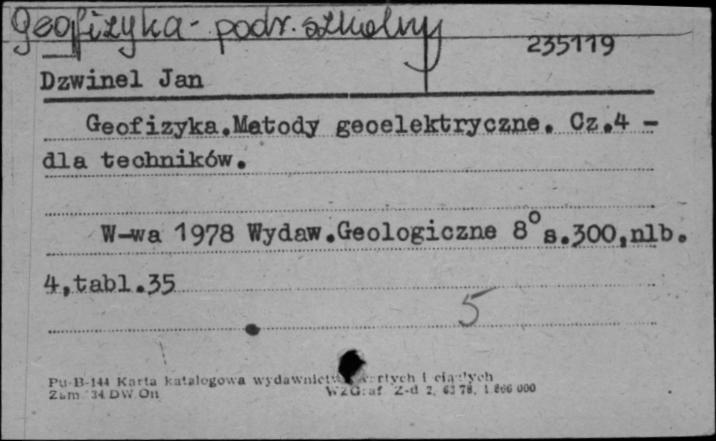 Geofizyka - podr. szkolny
235119
Dzwinel Jan
Geofizyka.Metody geoelektryczne. Cz.4 -
dla techników.
W-wa 1978 Wydaw.Geologiczne 8° s.300,nlb.
4,tabl.35
5
Pu-B-144 Karta katalogowa wydawnictw zwartych i ciągłych
Zam. 34 DW On WZGraf Z-d 2. 6378. 1 866 000